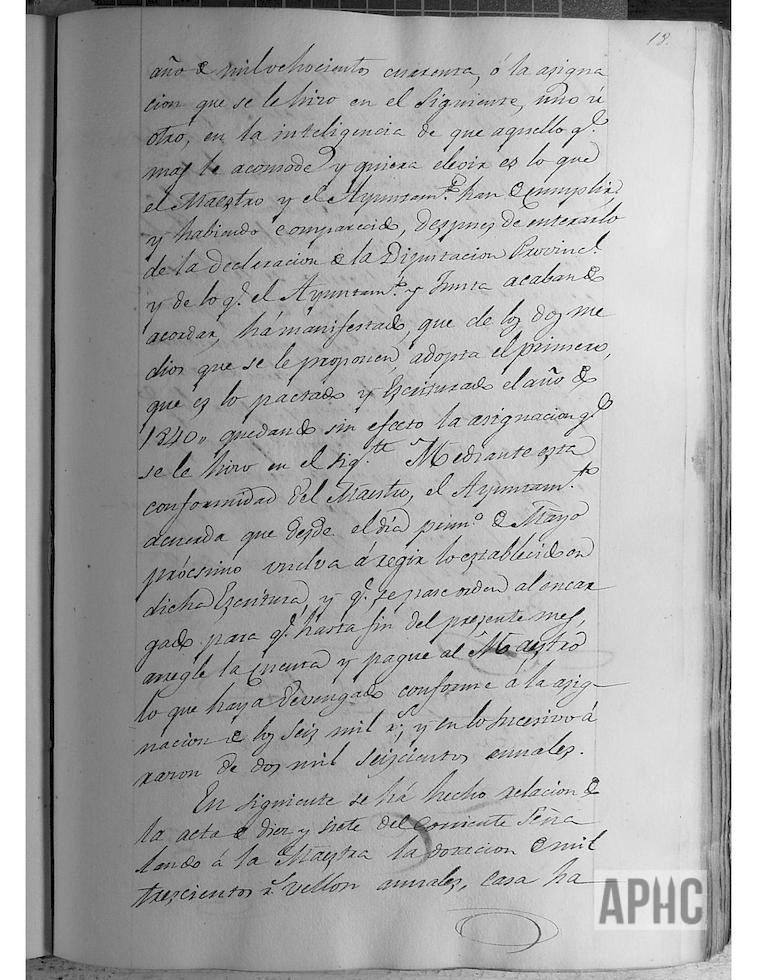 18.
año de mil ochocientos cuarenta, ó la asigna
cion que se le hizo en el siguiente, uno ú
otro, en la inteligencia de que aquello q.e
mas le acomode y quiera elegir es lo que
el Maestro y el Ayuntam.to han de cumplir,
y habiendo comparecido, despues de enterarlo
de la declaracion de la Diputacion Provinc.l
y de lo q.e el Ayuntam.to y Junta acaban de
acordar, há manifestado, que de los dos me
dios que se le proponen, adopta el primero,
que es lo pactado y escriturado el año de
1840, quedando sin efecto la asignacion q.e
se le hizo en el sig.te Mediante esta
conformidad del Maestro, el Ayuntam.to
acuerda que desde el dia prim.o de Mayo
prócsimo vuelva á regir lo establecido en
dicha Escritura, y q.e se pase orden al encar
gado para q.e hasta fin del presente mes,
arregle la Cuenta y pague al Maestro
lo que haya devengado conforme á la asig-
nacion de los seis mil r.s y en lo sucesivo á
razon de dos mil seiscientos anuales.
En siguiente se há hecho relacion de
la acta de diez y siete del corriente seña
lando á la Maestra la dotacion de mil
trescientos r.s vellon anuales, casa ha
APHC